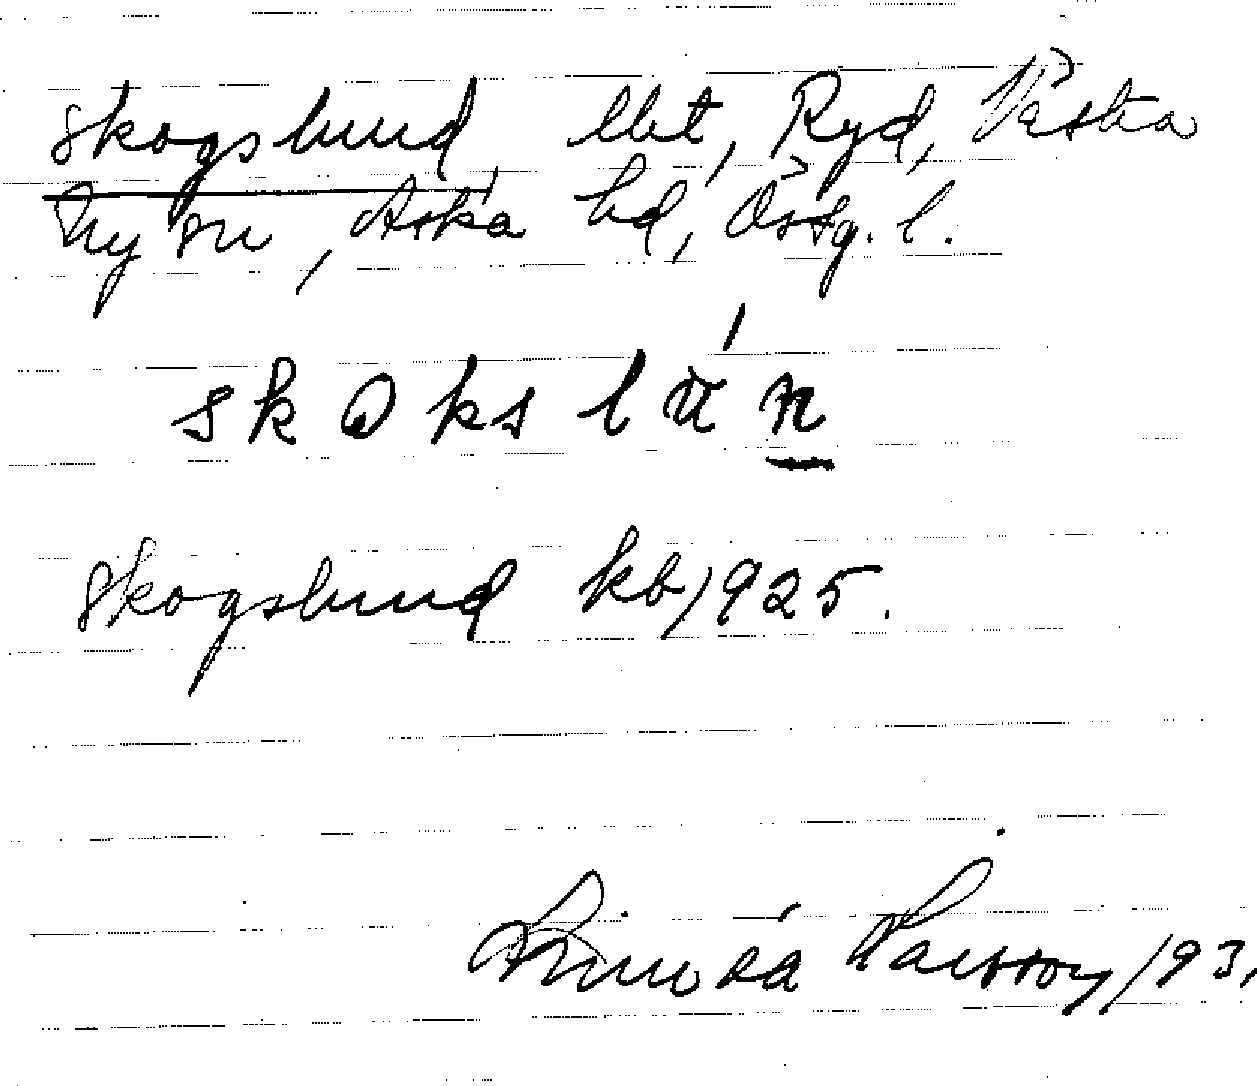 Skogslund, lht, Ryd, Västra
Ny sn, Aska hd, Östg. l.
skoksluń
Skogslund kb 1925.
Linnéa Larsson 193